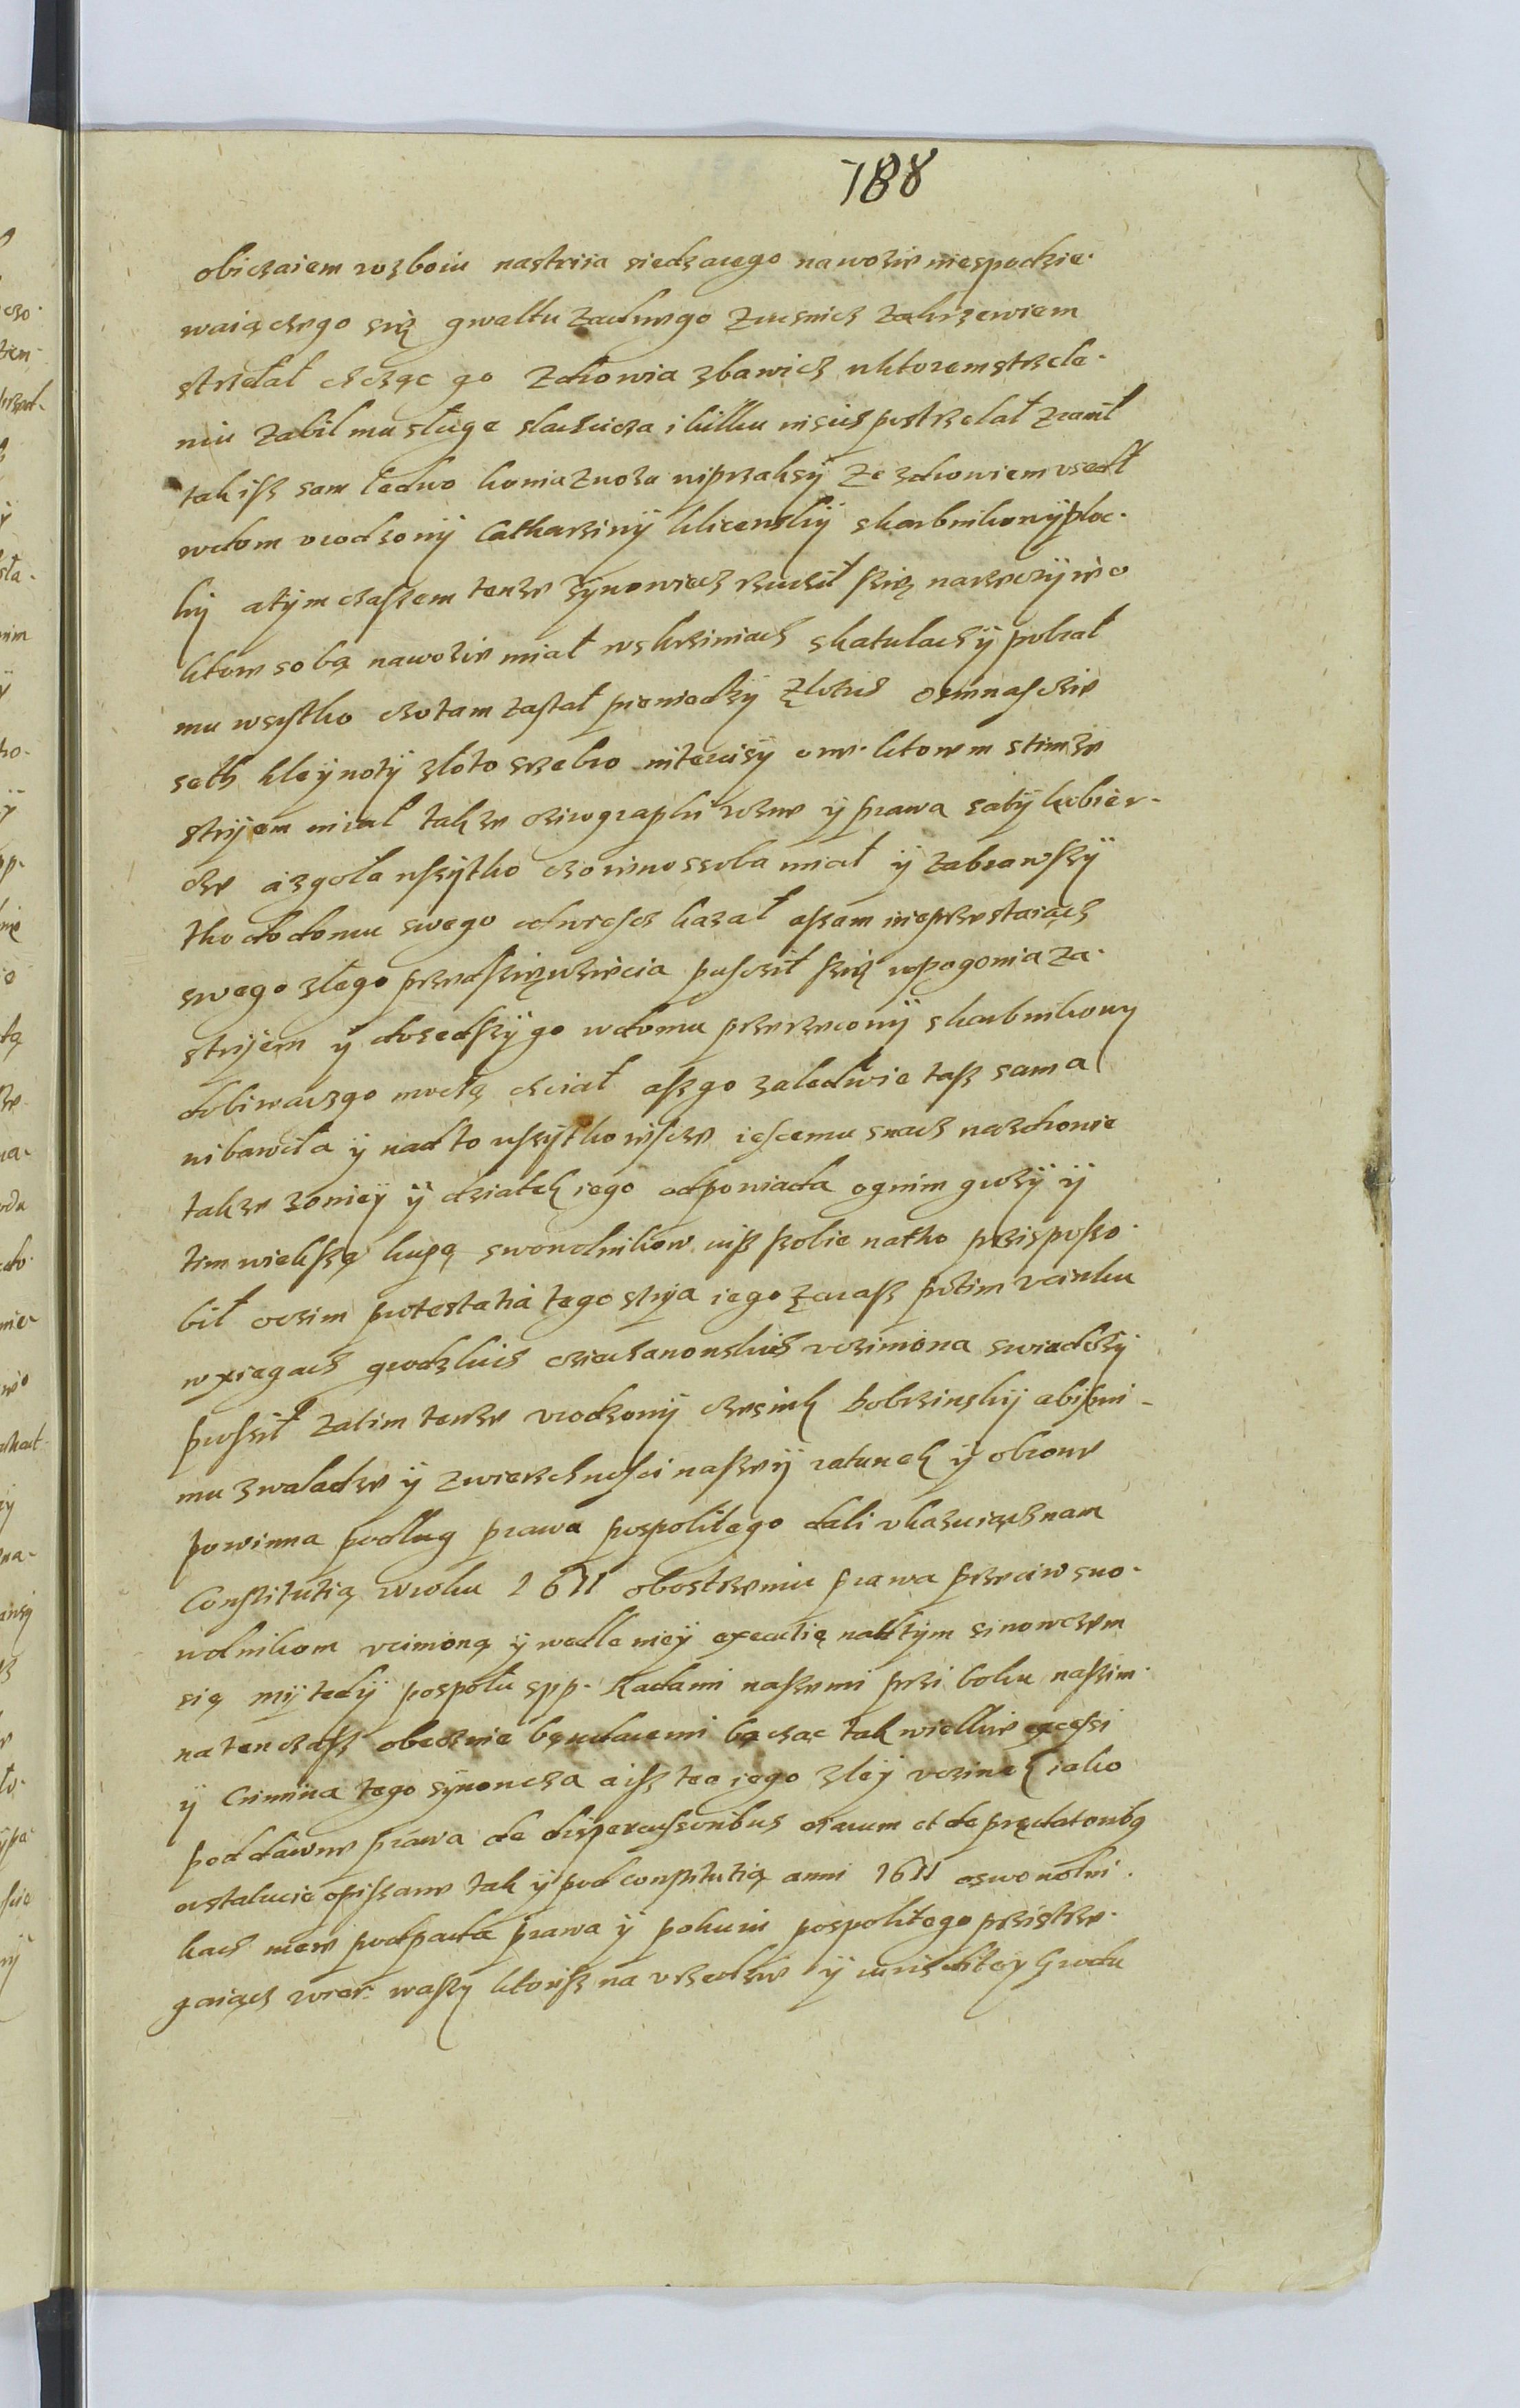 788
obiczaiem rozboiu nastriia siedzącego nawozie niespodzie-
waiączego się gwałtu zadnego zrucznicz zakrzewiem
strzelał chcząc go zdrowia zbawicz wktorem strzele-
niu zabił mu sługe slachcicza i kilku inszich postrzelał zranił
tak isz sam ledwo konia zwoza wiprzakszy ze zdrowiem uszedł
wdom urodzony Catharziny klicenskiy skarbnikowy ploc-
kiy atym czaszem tenze synowiecz rzucził szię narzeczy
ktore sobą nawozie miał wskrziniach skatulach y pobrał
mu wsystko czo tam zastał pieniedzy złotich osimnasczie
seth kleynoty złoto srzebro intercisy one ktorem stimze
stryem miał takze czirographi rozne y prawa saty kobier-
cze a zgoła wszytko czo ino ssoba miał y zabrawszy
tho do domu swego odwiescz kazał a szam nieprzestaiącz
swego złego przedszięwzięcia puscził szię wpogonia za
stryiem y doszedszy go wdomu przerzecony skarbnikowy
dobiwacz go mocłą chciał asz go zaledwie tasz sama
wibawiła y nad to wszytko iescemu snacz na zdrowie
takze zoniey y dziatek iego odpowiada ogniem grozy y
tim wiekszą kupą swowolnikow iusz szobie natho przisposzo-
bił oczim protestatia tego stryia iego zarasz potim ucinku
wxięgach grodzkich cziechanowskich uczimiona swiadczy
prosził zatim tenze urodzony Bobrzinskiy abismi
mu z waladze y zwierzchnosci naszey ratunek y obrone
powinna podlug prawa pospolitego dali ukazuiącz nam
Constitutią wroku 1611 obostrzeniu prawa przeciw swo-
wolnikom ucimioną y wedle niey executię nad tym sinowczem
się my tedy pospołu spp. Radami naszemi przi boku naszim
na ten czasz obecznie będącemi baczac tak wielkie excessi
y Crimina tego synowcza a isz ten iego zley uczinek iako
pod dawne prawa de dispercussoribus viarum et de prædatoribus
wstatucie opiszane tak y pod constitutią anni 1611 oswowolni-
kach podpada prawa y pokoiu pospolitego przistrze-
gaiącz wier. waszy ktorisz na urzedzie y iurisdicey Grodu